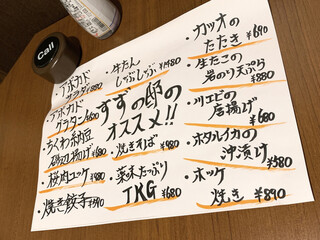 Call
アボカド
サラダ ¥680
アボカド
グラタン ¥680
ちくわ納豆
磯辺揚げ ¥480
・桜肉ユッケ ¥980
・焼き餃子 ¥590
・牛たん
しゃぶしゃぶ ¥1480
すずの邸の
オススメ!!
・焼きそば ¥980
・薬味たっぷり
TKG ¥680
・カツオの
たたき ¥690
・生たこの
岩のり天ぷら
¥880
・川エビの
唐揚げ
¥680
・ホタルイカの
沖漬け
¥580
・ホッケ
焼き ¥890